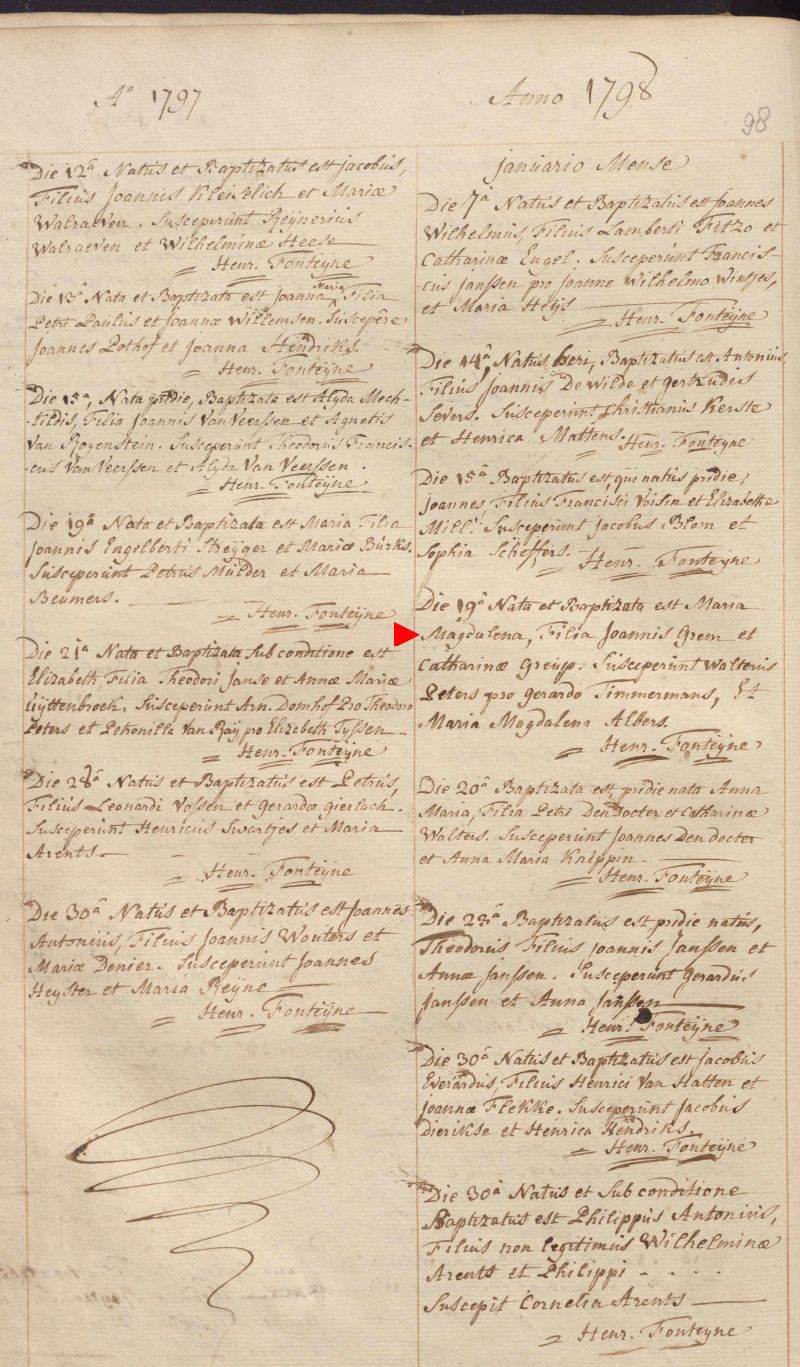 Aº 1797
Die 12ª Natus et Baptizatus est Jacobus,
Filius Joannis Kleiselich et Mariæ
Walraeven. Susceperunt Reijnerius
Walraeven et Wilhelminæ Heese
Henr. Fonteijne
Die 13ª Nata et Baptizata est Joanna Maria Filia
Petri Paulus et Joannæ Willemsen. Suscepêre
Joannes Pothof et Joanna Hendriks.
Henr. Fonteijne
Die 15ª, Nata pridie, Baptizata est Alyda Mech-
tildis, Filia Joannis Van Veerssen et Agnetis
Van Royenstein. Susceperunt Theodorus Francis-
cus Van Veerssen et Alyda Van Veerssen.
Henr. Fonteijne
Die 19ª Nata et Baptizata est Maria Filia
Joannis Engelberti Streijger et Mariæ Burks.
Susceperunt Petrus Mulder et Maria
Beumers.
Henr. Fonteijne
Die 21ª Nata et Baptizata Sub conditione est
Elizabeth, Filia Theodori Janse et Annæ Mariæ
Uyttenbroek. Susceperunt Arn. Domhof Pro Theodoro
Peters et Petronilla Van Raij, pro Elizabeth Tyssen
Henr. Fonteijne
Die 28ª Natus et Baptizatus est Petrus,
Filius Leonardi Vossen et Gerardæ Gierlach.
Susceperunt Henricus Swartjes et Maria
Arents
Henr. Fonteijne
Die 30ª Natus et Baptizatus est Joannes
Antonius, Filius Joannis Wouters et
Mariæ Denier. Susceperunt Joannes
Heyster et Maria Reyne
Henr. Fonteijne
Anno 1798
98
Januario Mense
Die 7ª Natus et Baptizatus est Joannes
Wilhelmus, Filius Lamberti Fitzo et
Catharinæ Engel. Susceperunt Francis-
cus Janssen pro Joanne Wilhelmo Wintjes,
et Maria Heijs
Henr. Fonteijne
Die 14ª, Natus heri, Baptizatus est Antonius
Filius Joannis De Wilde et Gertrudis
Severs. Susceperunt Christianus Kerste
et Henrica Mattens. Henr. Fonteyne
Die 15ª Baptizatus est, qui natus pridie,
Joannes, Filius Francisci Voisin et Elizabethæ
Mill. Susceperunt Jacobus Blom et
Sophia Scheffers. Henr. Fonteyne
Die 19ª Nata et Baptizata est Maria
Magdalena, Filia Joannis Grem et
Catharinæ Greup. Susceperunt Walterus
Peters pro Gerardo Timmermans, Et
Maria Magdalena Albers.
Henr. Fonteijne
Die 20ª Baptizata est, pridie nata Anna
Maria, Filia Petri Den Docter et Catharinæ
Walters. Susceperunt Joannes Den Docter
et Anna Maria Knippin
Henr. Fonteijne
Die 23ª Baptizatus est pridie natus,
Theodorus Filius Joannis Janssen et
Annæ Janssen. Susceperunt Gerardus
Janssen et Anna Janssen
Henr. Fonteijne
Die 30ª Natus et Baptizatus est Jacobus
Everardus, Filius Henrici Van Hatten et
Joannæ Flekke. Susceperunt Jacobus
Dierikse et Henrica Hendriks.
Henr. Fonteijne
Die 30ª Natus et Sub conditione
Baptizatus est Philippus Antonius,
Filius non legitimus Wilhelminæ
Arents et Philippi . . . .
Suscepit Cornelia Arents
Henr. Fonteyne